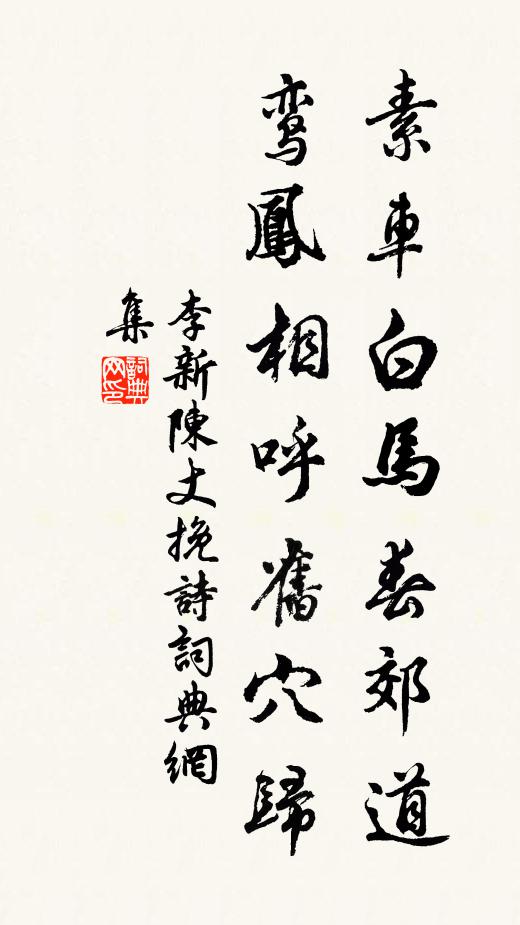 素車白馬春郊道
鸾鳳相呼舊穴歸
李新陳丈挽詩詞典網
集
詞典网印